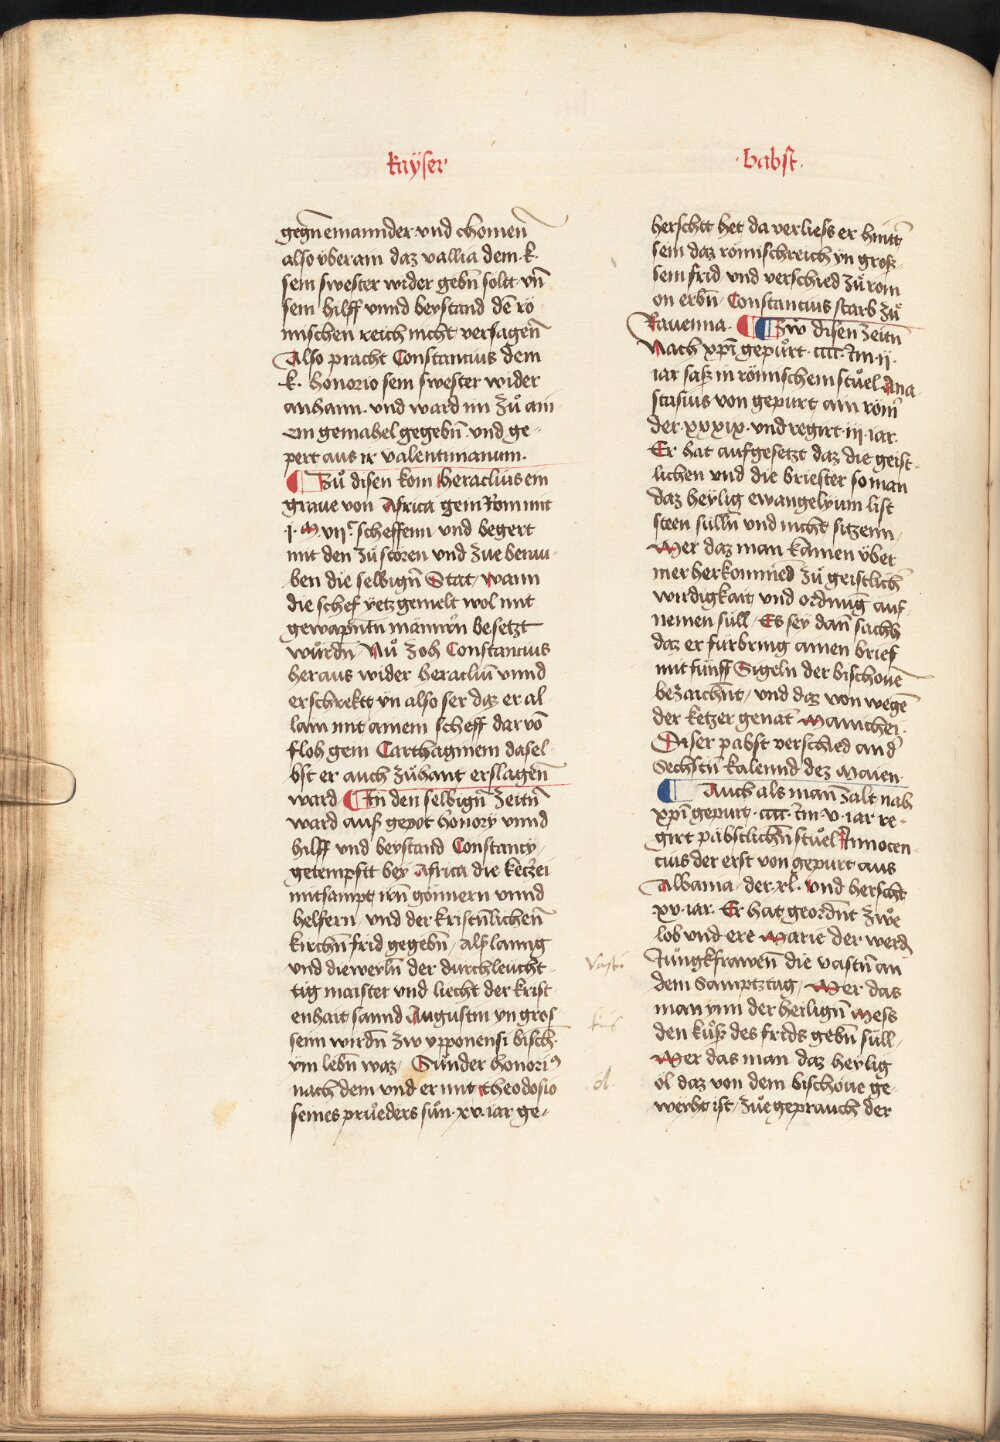 kayser
gegn̄ emannder vnd chomen̄
also vberain daz vallia dem · k ·
sein swester wider gebn̄ solt vn̄
sein hilff vnnd beystand dē rö
mischen reich nicht versagen̄
Also pracht Constancius dem
k · honorio sein swester wider
anhaim · vnd ward im zů ain
em gemahel gegebn̄ · vnd ge
pert aus ir valentinianum ·
¶ Zů disen kom heraclius ein
graue von Africa gein Rom mit
scheffenn vnd begert
mit den zů storen vnd zue berau
ben die selbign̄ Stat / wann
die schef yetz gemelt wol mit
gewapn̄tn̄ mannrn̄ besetzt
würdn̄ Nů zoh Constancius
heraus wider heracliū vnnd
erschrekt yn also ser daz er al
lain mit ainem scheff dar vō
floh gem Carthaginem dasel
bst er auch zůhant erslagen̄
ward ¶ In den selbign̄ zeitn̄
ward aus gepot honory vnnd
hilff vnd beystand Constancy /
getempfit bey Africa die ketzei
mitsampt irn̄ gönnern vnnd
helfern · vnd der kristn̄lichen̄
kirchn̄ frid gegebn̄ / als lanng
vnd dieweyln̄ der durchleucht
tig maister vnd liecht der krist
enhait sannd Augustin yn gros
senn wirdn̄ zw ypponensi bisch
vm lebn̄ waz / Sunder honoriꝰ
nach dem vnd er mit theodosio
seines prueders sůn · xv · iar ge
· babst ·
herscht het da verliess er hintt̄
sein daz römischreich yn gros
sein frid vnd verschied zů rom
on erbn̄ Constancius starb zů
Rauenna · ¶ ¶ Zw disen zeitn̄
Nach xp̄i gepürt · cccc · vm · ii ·
iar sass in römischem stuel Ana
stasius von gepurt ain röm̄
der · xxxix · vnd regirt · iii · iar ·
Er hat aufgesetzt daz die geist
lichen vnd die briester so man
daz heylig ewangelyum list
steen sülln̄ vnd nicht sitzenn /
Mer daz man kainen vber
mer herkommed zů geistlich̄
wirdigkait vnd ordnug auf
nemen süll / Es sey dan̄ sach
daz er fürbring ainen brief
mit fünff Sigeln der bischoue
bezaichn̄t / vnd daz von wegē
der ketzer genāt manichei ·
Diser pabst verschied an d̄
Sechstn̄ kalennd dez maien
¶ Auch als man zalt nah
xp̄i gepurt · cccc · vm · v · iar re
girt pabstlichn̄ stuel Innocen
cius der erst von gepurt aus
Albania · der · xl · vnd herscht
· xv · iar · Er hat geordn̄t zwe
lob vnd ere marie der werd̄
Jungkfrawen̄ die vastn̄ an
dem Samptztag / Mer das
man ynn der heilign̄ mess
den kůss des frids gebn̄ süll
Mer das man daz heylig
öl daz von dem bischoue ge
weiht ist / zue geprauch der
vastn
kus
öl